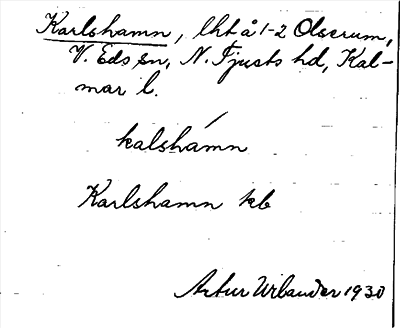 Karlshamn, lht å 1-2 Olserum,
V. Eds sn, N. Tjusts hd, Kal-
mar l.
kalshámn
Karlshamn kb
Artur Urbander 1930